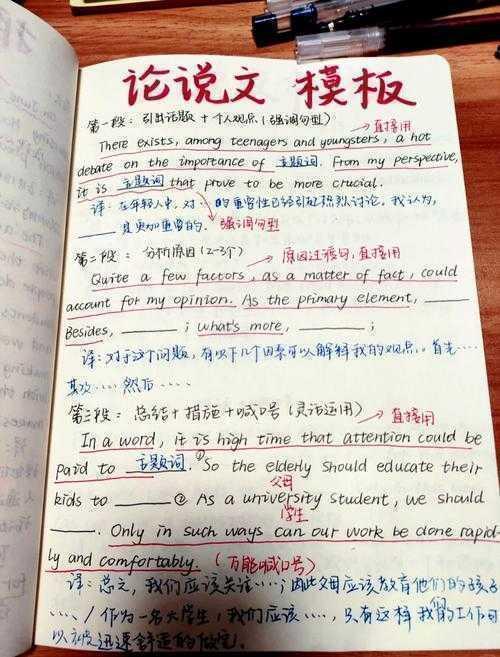 论说文 模板
第一段：引出话题 + 个人观点（强调句型）
→直接用
There exists, among teenagers and youngsters, a hot
debate on the importance of 主题词. From my perspective,
it is 主题词 that prove to be more crucial.
译：在年轻人中，对…的重要性已经引起热烈讨论。我认为，
…是更加重要的. 强调句型
第二段：分析原因（2-3个） → 原因过渡句，直接用
Quite a few factors, as a matter of fact, could
account for my opinion. As the primary element, ______
Besides, ______ ; what's more, ______ ;
译：对于这个问题，有以下几个因素可以解释我的观点。首先…
其次…… 然后……
第三段：总结 + 措施 + 喊口号（灵活运用） → 直接用
In a word, it is high time that attention could be
paid to 主题词. ①So the elderly should educate their
父母
kids to ______ ② As a university student, we should
学生
______. Only in such ways can our work be done rapid-
ly and comfortably. （万能喊口号）
译：总之，我们应该关注……；因此父母应该教育他们的孩子
…… / 作为一名大学生，我们应该……，只有这样我们的工作可
以被迅速舒适的做完.